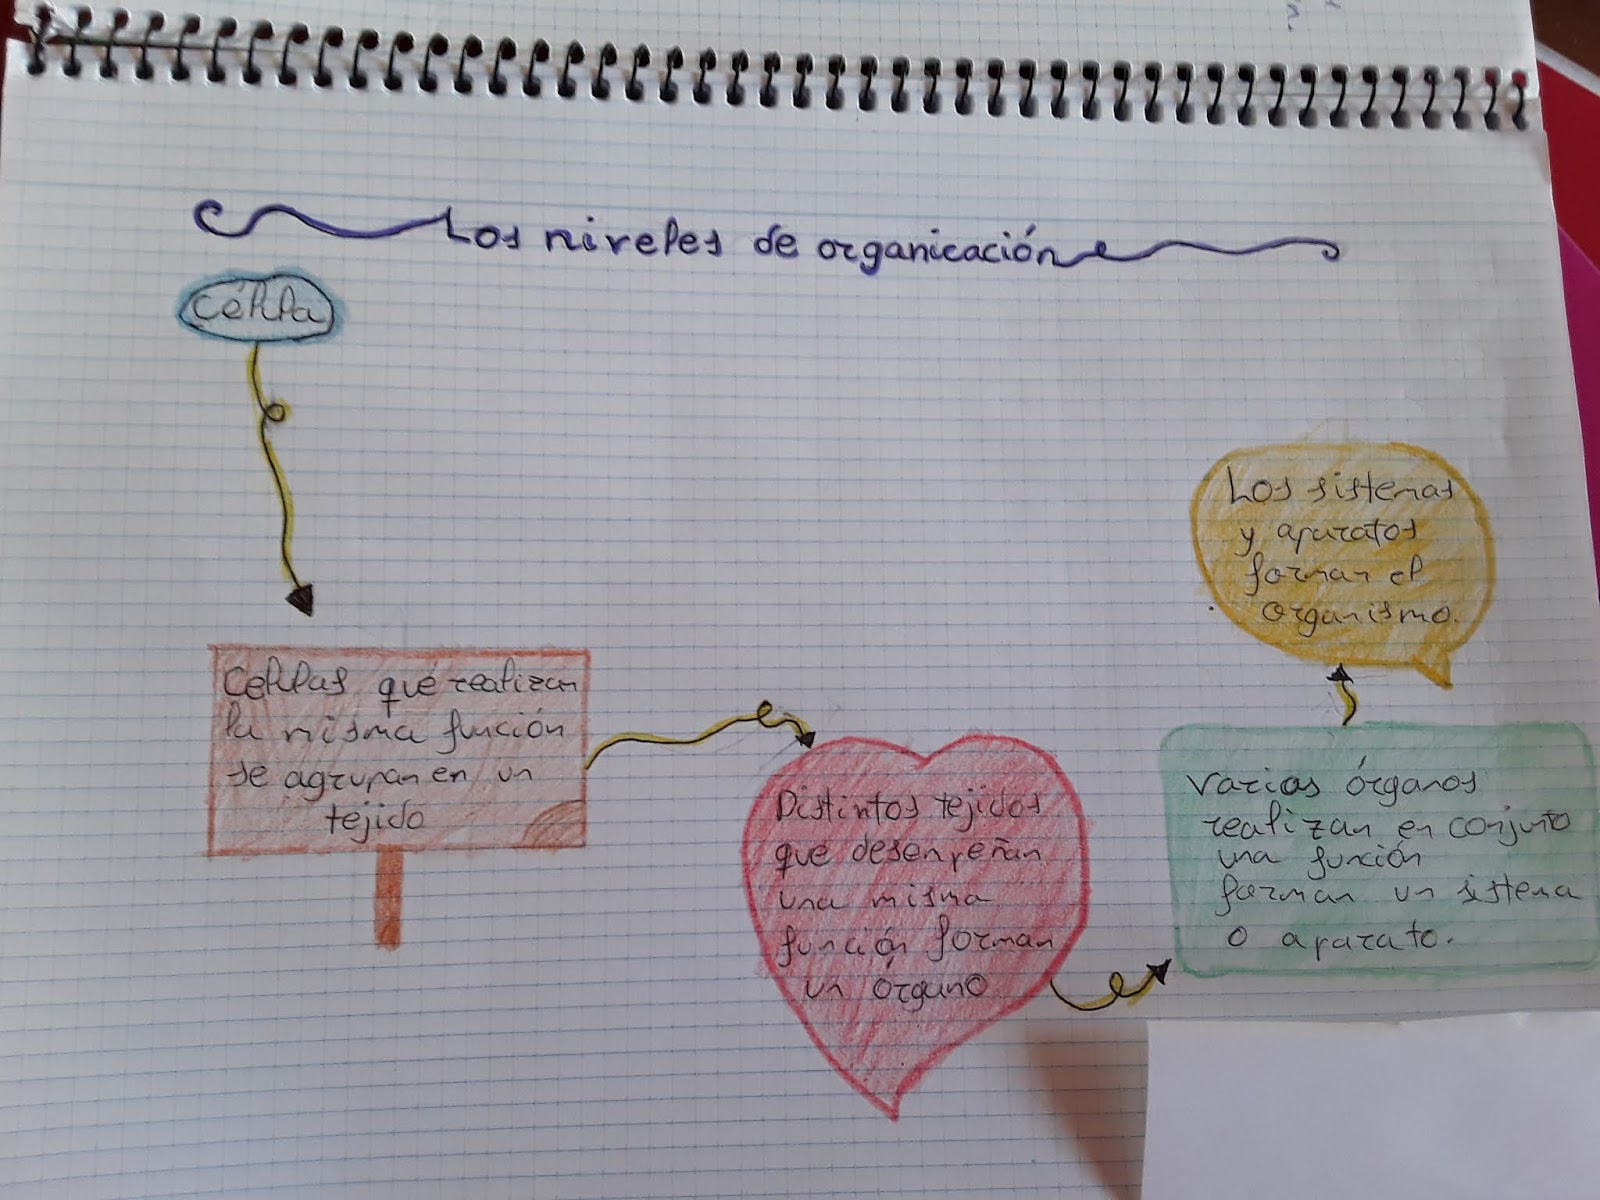 Los niveles de organicación
Célula
Células qué realizan
la misma función
se agrupan en un
tejido
Distintos tejidos
que desenpeñan
una misma
función forman
un órgano
Varios órganos
realizan en conjunto
una función
forman un sistema
o aparato.
Los sistemas
y aparatos
forman el
organismo.